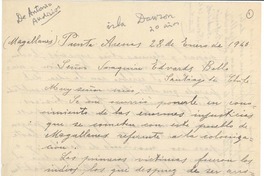 De Arturo
Andrews
isla Dawson
20 años
1
(Magallanes) Punta Arenas 28 de Enero de 1940
Señor Joaquin Edwards Bello
Santiago de Chile
Muy señor mio:
Se me permite ponerle en cono-
cimiento de las enormes injusticias
que se cometen con este pueblo de
Magallanes referente a la coloniza-
ción:
Las primeras victimas fueron los
indios, los que despues de ser